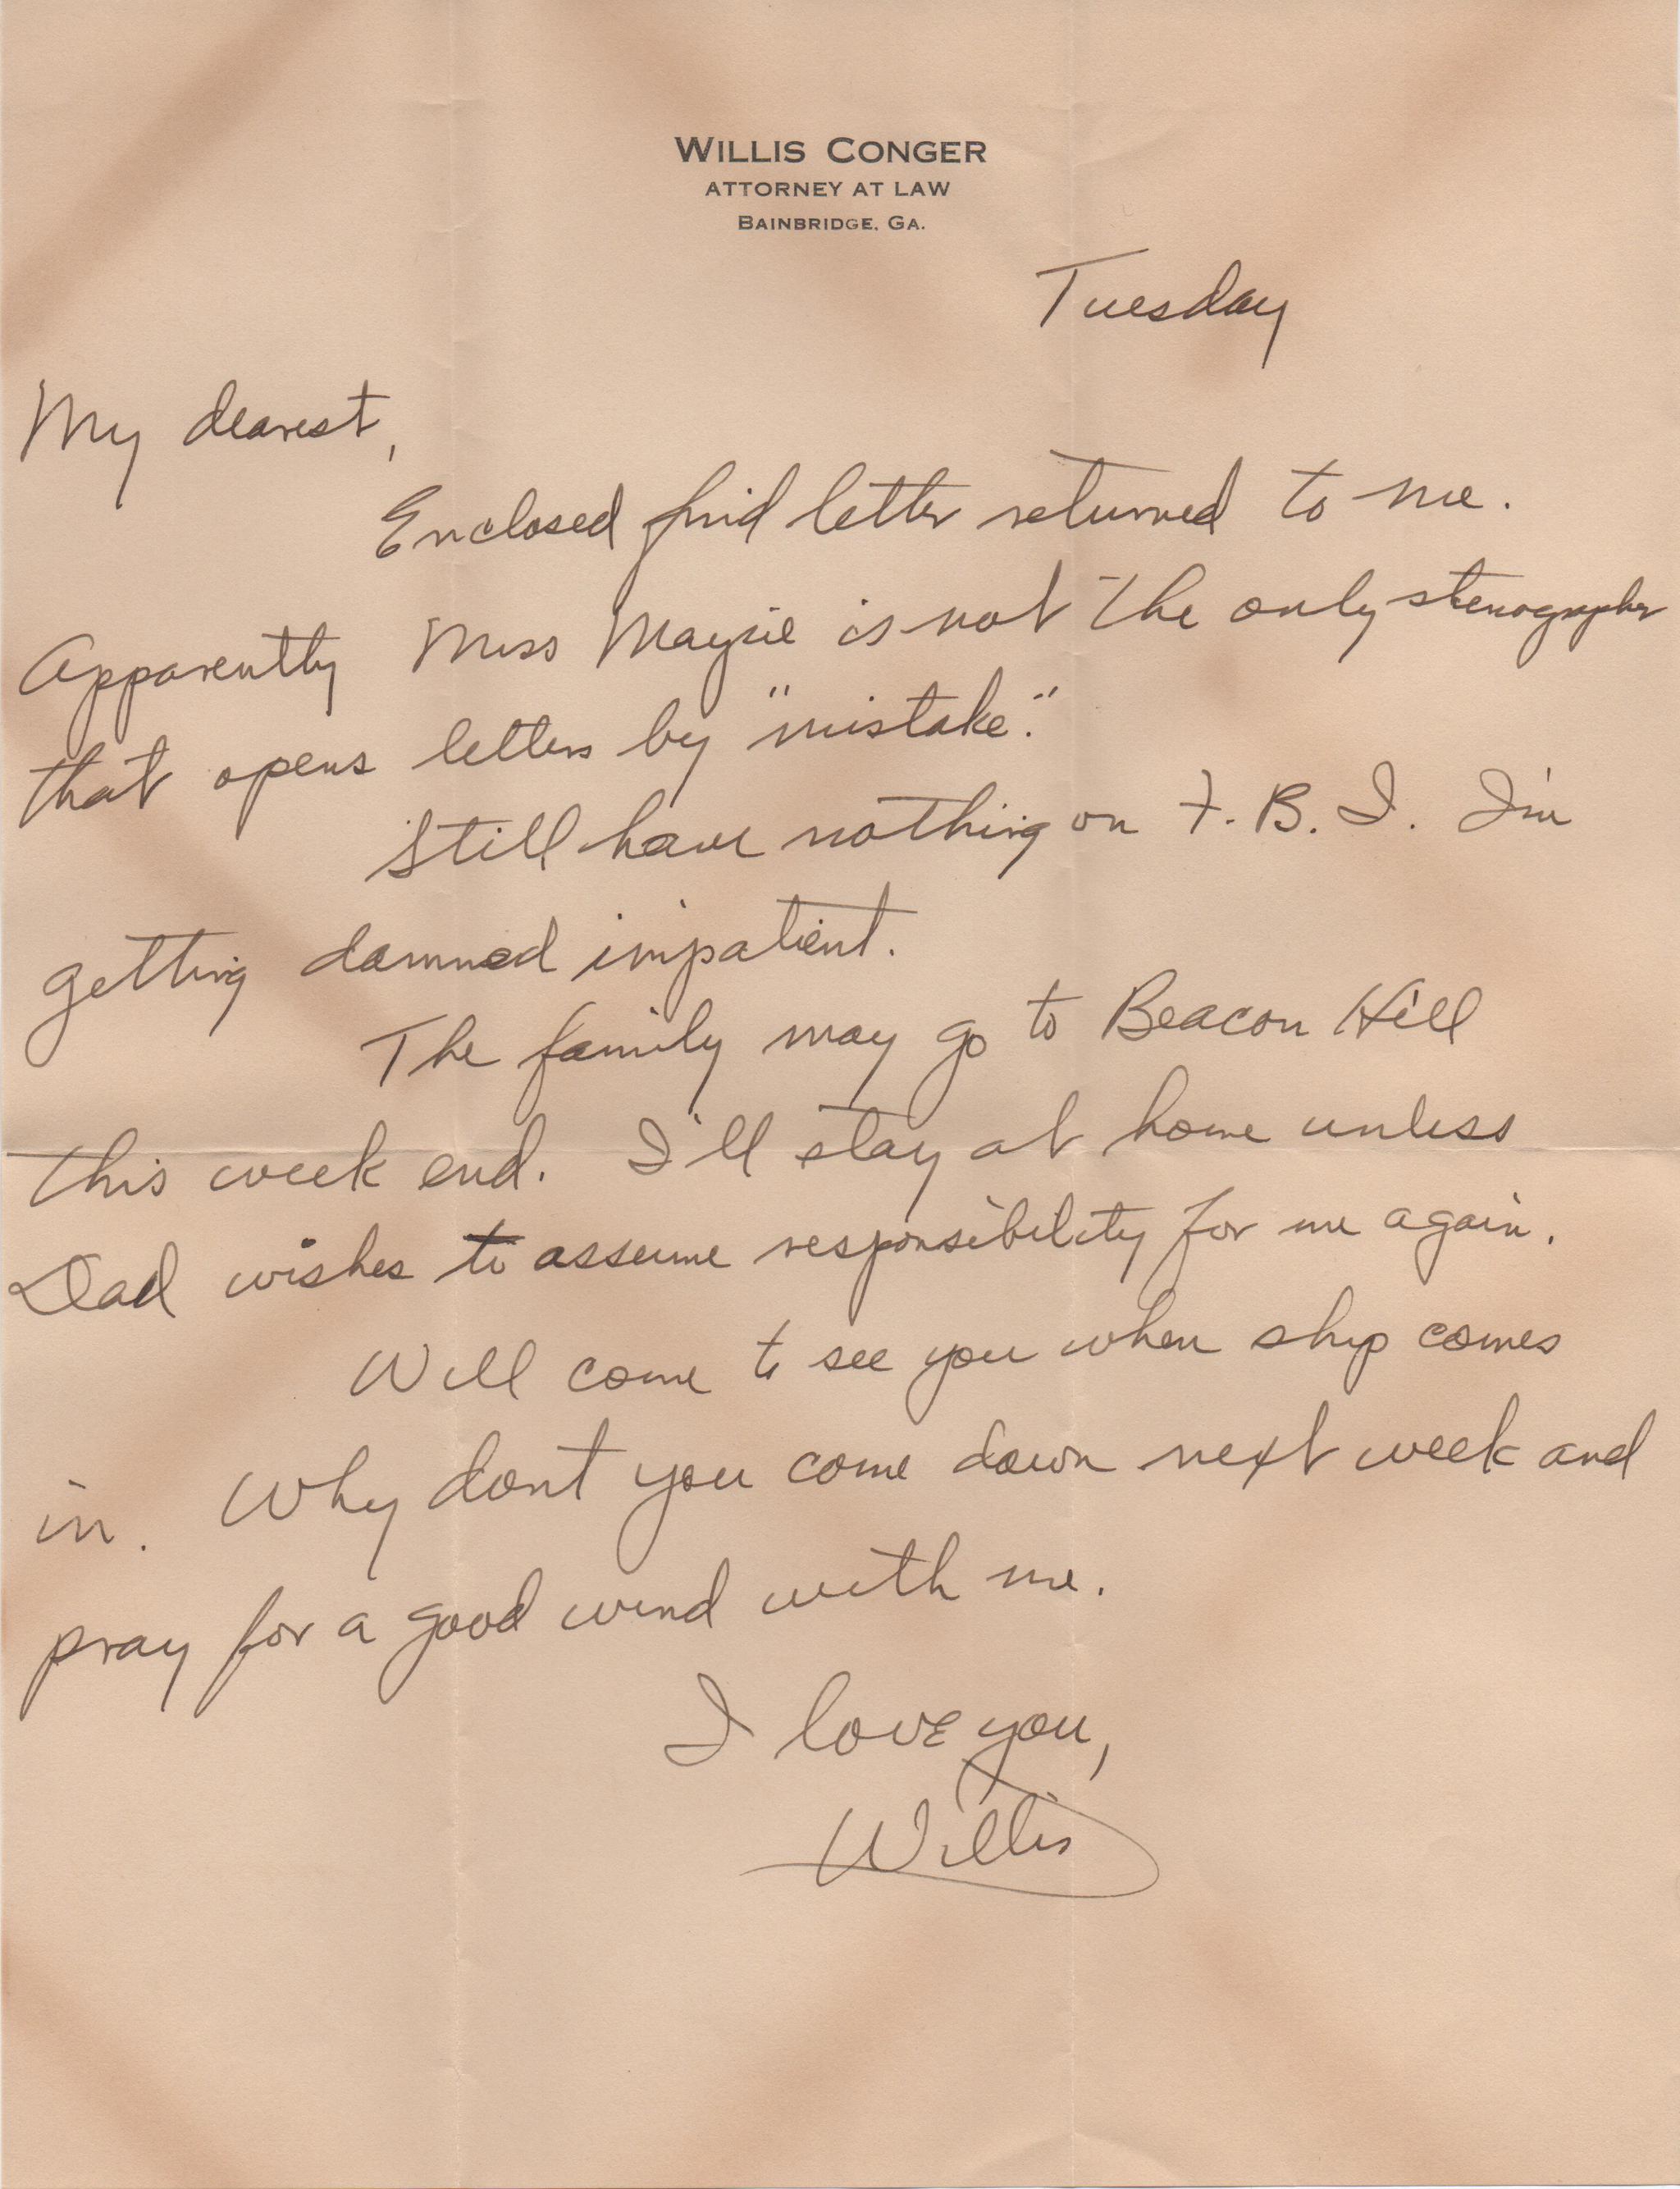 WILLIS CONGER
ATTORNEY AT LAW
BAINBRIDGE, GA.
Tuesday
My dearest,
Enclosed find letter returned to me.
Apparently Miss Maysie is not the only stenographer
that opens letters by "mistake."
Still have nothing on F. B. I. I'm
getting damned impatient.
The family may go to Beacon Hill
this week end. I'll stay at home unless
Dad wishes to assume responsibility for me again.
Will come to see you when ship comes
in. Why dont you come down next week and
pray for a good wind with me.
I love you,
Willis